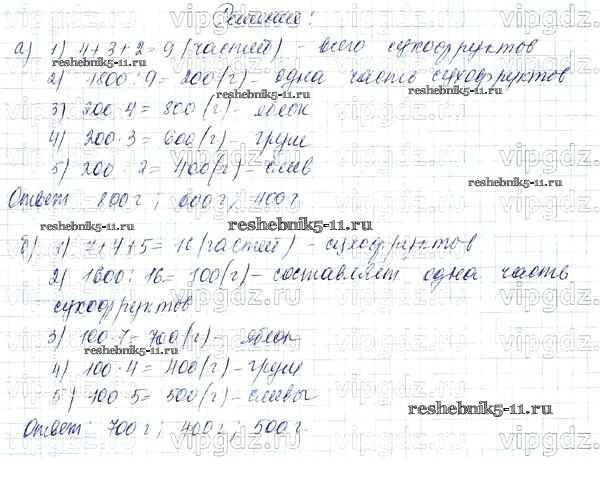 Решение:
а) 1) 4+3+2=9 (частей) - всего сухофруктов
2) 1800:9=200(г) - одна часть сухофруктов
reshebnik5-11.ru
reshebnik5-11.ru
3) 200·4=800(г) - яблок
4) 200·3=600(г) - груш
5) 200·2=400(г) - слив
Ответ: 800г; 600г; 400г.
reshebnik5-11.ru
reshebnik5-11.ru
б) 1) 7+4+5=16(частей) - сухофруктов
2) 1600:16=100(г) - составляет одна часть
сухофруктов
3) 100·7=700(г) - яблок
reshebnik5-11.ru
reshebnik5-11.ru
4) 100·4=400(г) - груш
5) 100·5=500(г) - сливы
reshebnik5-11.ru
Ответ: 700г; 400г; 500г.
vipgdz.com